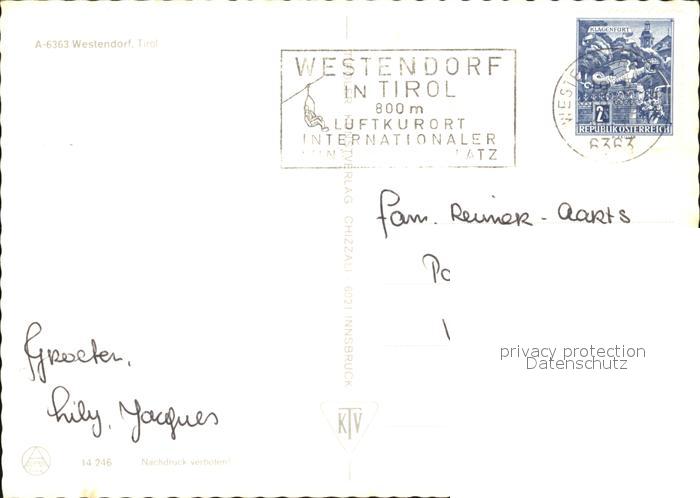 A-6363 Westendorf, Tirol
WESTENDORF
IN TIROL
800m
LUFTKURORT
INTERNATIONALER
KLAGENFURT
2S
REPUBLIK ÖSTERREICH
6363
VERLAG CHIZZALI 6021 INNSBRUCK
Fam. Reimer-Aarts
Groeten,
Lily, Jacques
privacy protection
Datenschutz
KTV
14 246 Nachdruck verboten!